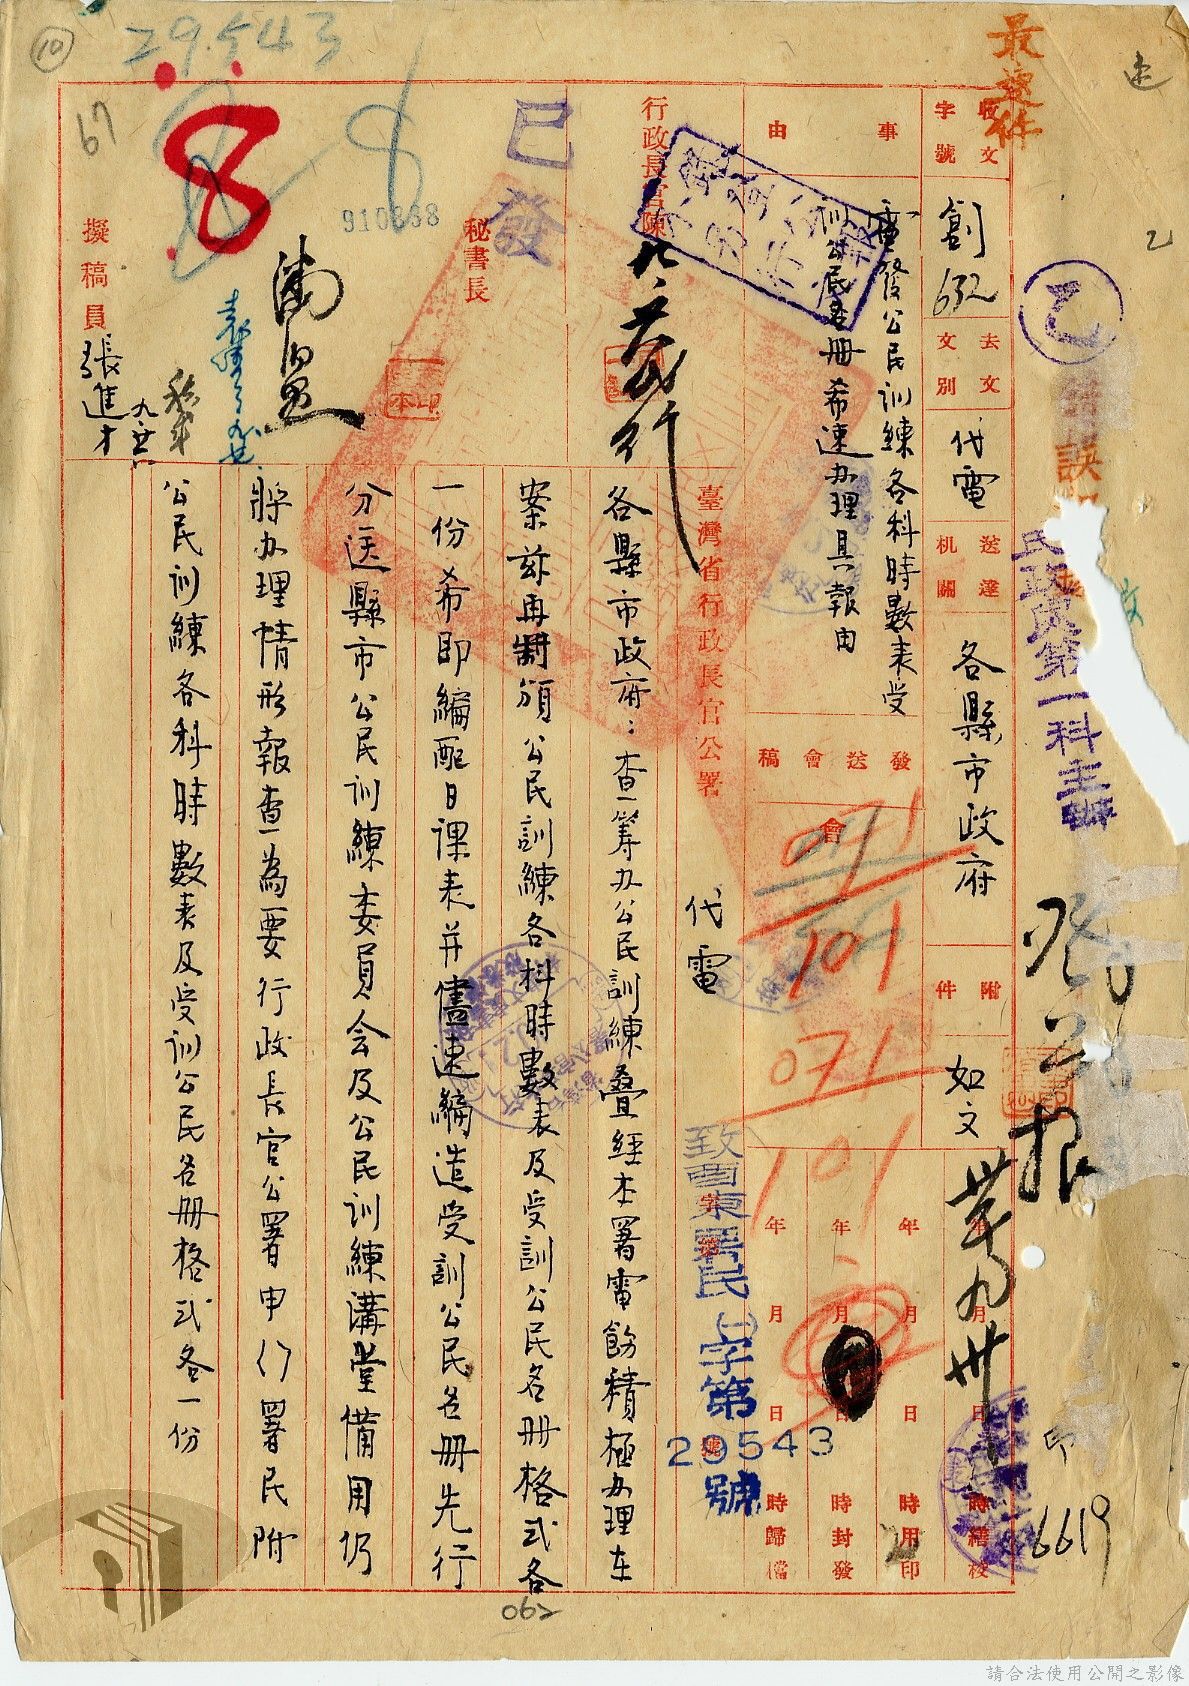 最速件
速
乙
乙
民政處第一科主辦
印
6619
收文
字號
創
632
去文
文別
代電
送達
机關
各縣市政府
附
件
如文
事
由
電發公民訓練各科時數表受
訓公民名冊希速办理具報由
發送會稿
會
0711
101
071
101
年月日時繕校
年月日時用印
年月日時封發
年月日時歸檔
致酉東署民(一)字第
29543
號
行政長官陳
已發
秘書長
910638
29543
8
10
67
擬稿員
張進才
臺灣省行政長官公署
代電
各縣市政府：查籌办公民訓練叠經本署電飭積極办理在
案茲再制頒公民訓練各科時數表及受訓公民名冊格式各
一份希即編配日課表并儘速編造受訓公民名冊先行
分送縣市公民訓練委員会及公民訓練講堂備用仍
將办理情形報查為要行政長官公署申(　)署民附
公民訓練各科時數表及受訓公民名冊格式各一份
062
請合法使用公開之影像